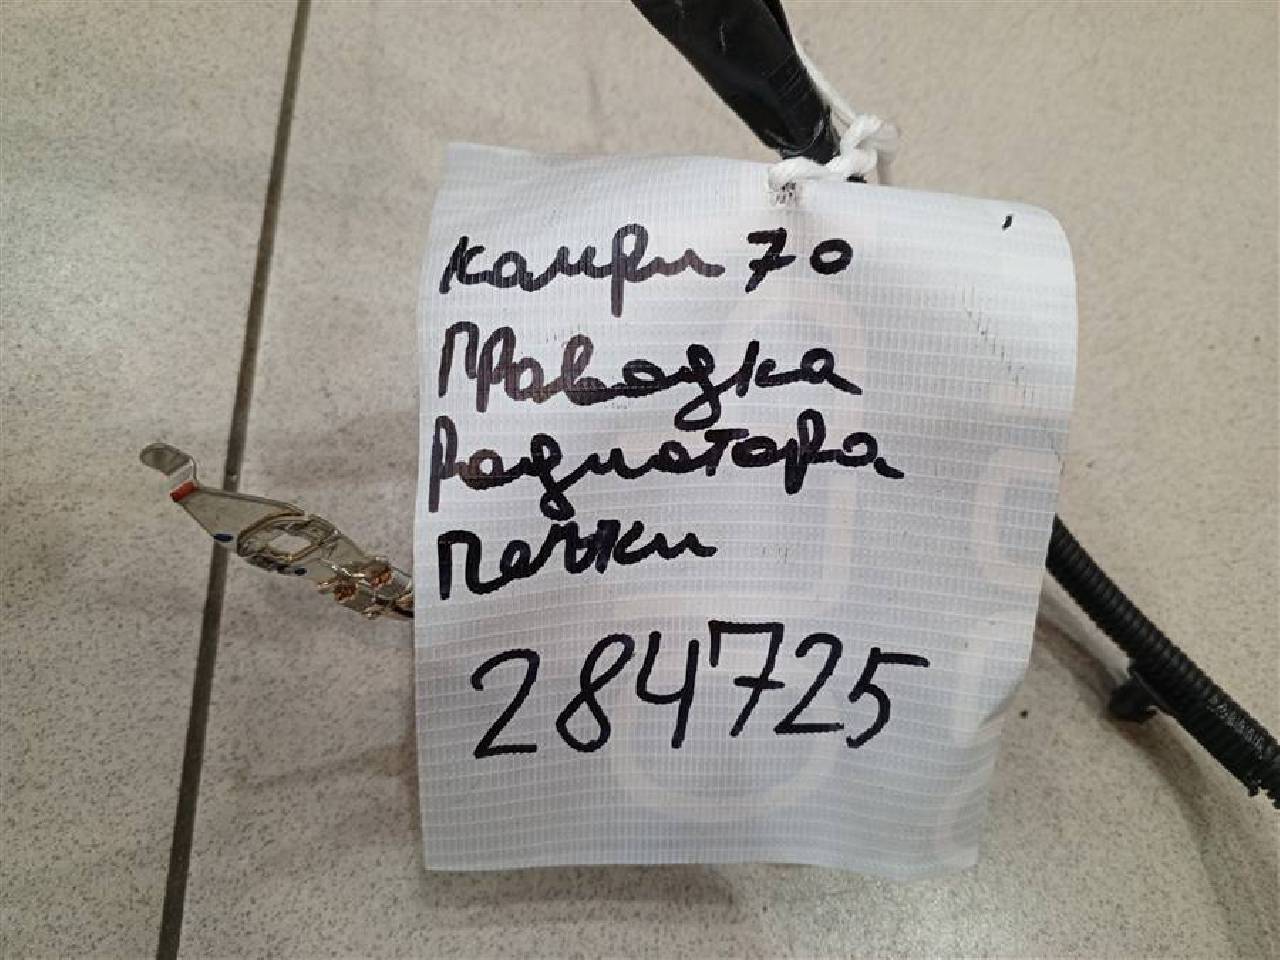 камри 70
Проводка
Радиатора
печки
284725